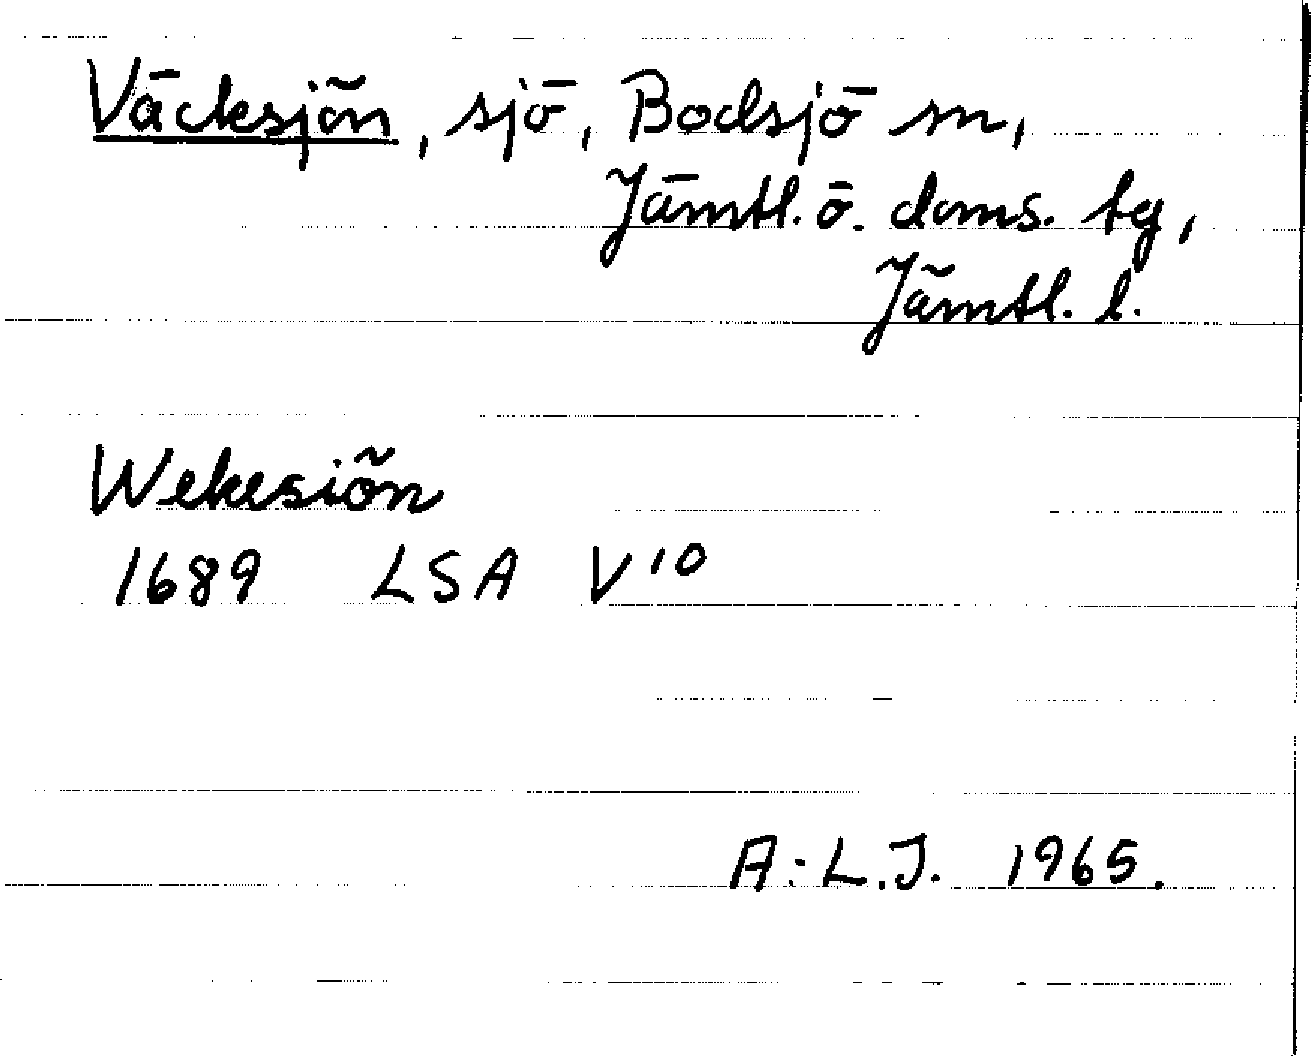 Väcksjön, sjö, Bodsjö sn,
Jämtl. ö. doms. tg,
Jämtl. l.
Wekesiön
1689 LSA V10
A:L.J. 1965.